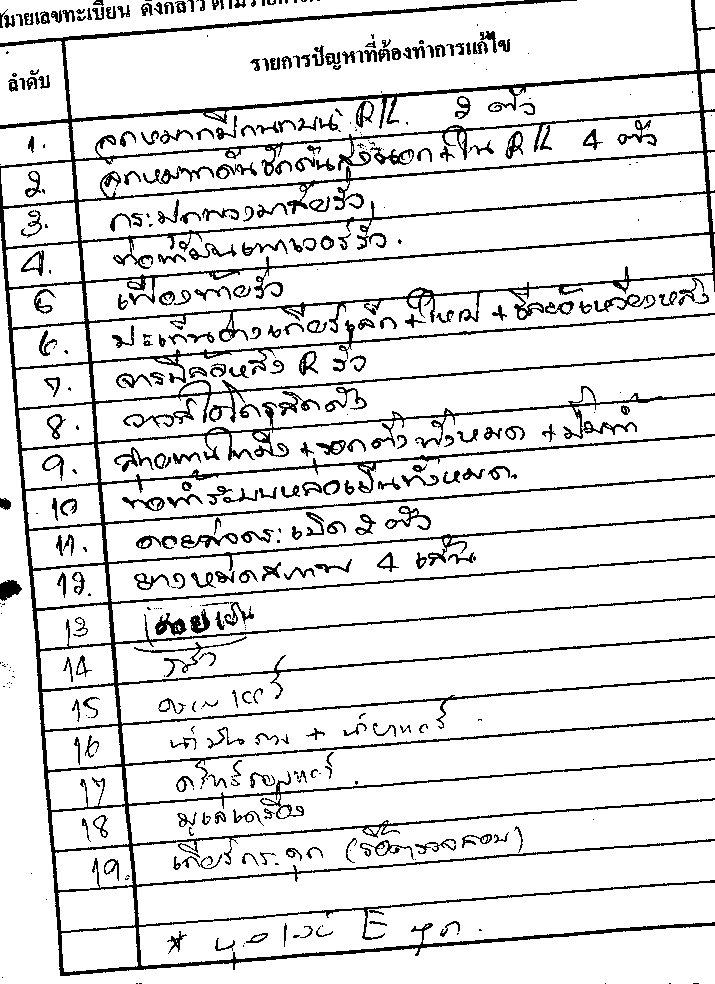 หมายเลขทะเบียน ดังกล่าว ตามรายการ
ลำดับ รายการปัญหาที่ต้องทำการแก้ไข
1. ลูกหมากปีกนกบน R/L. 2 ตัว
2. ลูกหมากคันชักคันส่งนอก+ใน R/L 4 ตัว
3. กระปุกพวงมาลัยรั่ว
4. ท่อน้ำมันเพาเวอร์รั่ว.
5 เฟืองท้ายรั่ว
6. ปะเก็นอ่างเกียร์เล็ก+ใหญ่ + ซีลข้อเหวี่ยงหลัง
7. จารบีล้อหลัง R รั่ว
8. วาล์วไฮโดรลิคดัง
9. สายพานไทม์มิ่ง + รอกตั้งทั้งหมด + ปั๊มน้ำ
10 ท่อน้ำระบบหล่อเย็นทั้งหมด.
11. คอยล์จดระเบิด 2 ตัว
12. ยางหมดสภาพ 4 เส้น
13
14
15
16 น้ำมัน + น้ำยาแอร์
17
18
19. เกียร์กระตุก (รื้อตรวจสอบ)